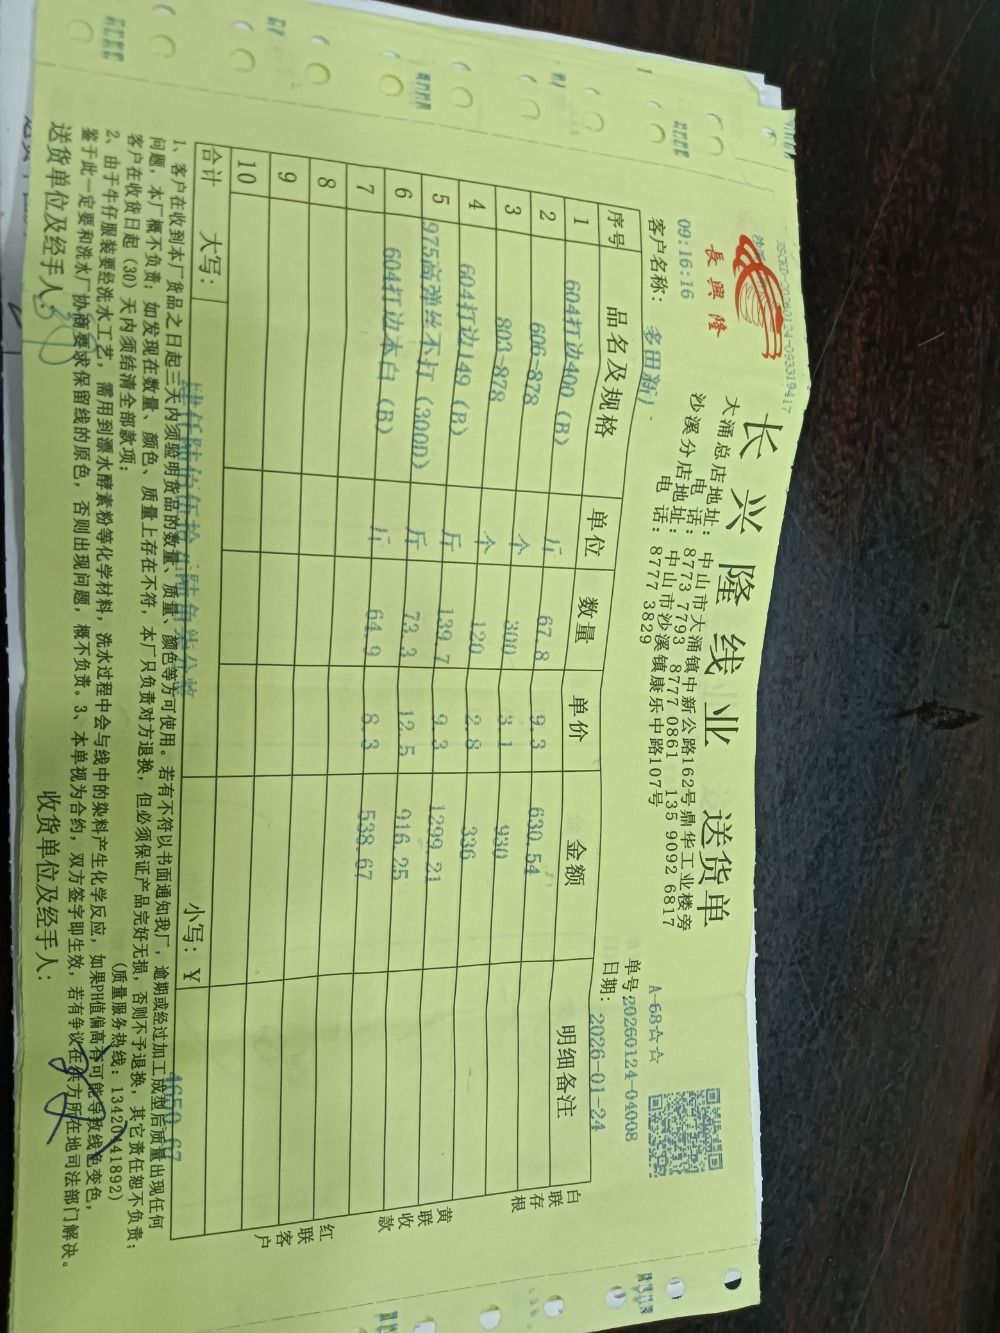 XSCKD-20260124-093319417
長興隆
长兴隆线业 送货单
大涌总店地址: 中山市大涌镇中新公路162号鼎华工业楼旁
电 话: 8773 7793 8777 0861 135 9092 6817
沙溪分店地址: 中山市沙溪镇康乐中路107号
电 话: 8777 3829
09:16:16
A-68☆☆
单号:20260124-04008
客户名称: 多田新
日期: 2026-01-24
序号 品名及规格 单位 数量 单价 金额 明细备注
1 604打边400 (B) 斤 67.8 9.3 630.54
2 606-878 个 300 3.1 930
3 803-878 个 120 2.8 336
4 604打边149 (B) 斤 139.7 9.3 1299.21
5 975高弹丝不打 (300D) 斤 73.3 12.5 916.25
6 604打边本白 (B) 斤 64.9 8.3 538.67
7
8
9
10
合计 大写: 肆仟陆佰伍拾 陆角柒分整 小写: ¥ 4650.67
1、客户在收到本厂货品之日起三天内须验明货品的数量、质量、颜色等方可使用。若有不符以书面通知我厂，逾期或经过加工成型后质量出现任何
问题，本厂概不负责；如发现在数量、颜色、质量上存在不符，本厂只负责对方退换，但必须保证产品完好无损，否则不予退换，其它责任恕不负责；
客户在收货日起（30）天内须结清全部款项； (质量服务热线: 13420441892)
2、由于牛仔服装要经洗水工艺，需用到漂水酵素粉等化学材料，洗水过程中会与线中的染料产生化学反应，如果PH值偏高有可能导致线色变色，
鉴于此一定要和洗水厂协商要求保留线的原色，否则出现问题，概不负责。3、本单视为合约，双方签字即生效，若有争议在供方所在地司法部门解决。
送货单位及经手人: 收货单位及经手人:
白联存根
黄联收款
红联客户